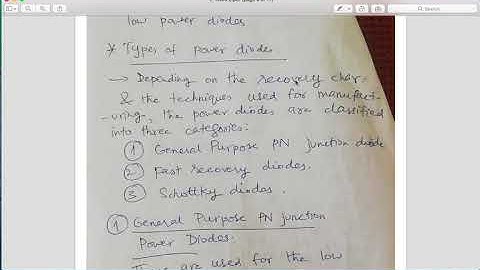 low power diodes
* Types of power diodes
→ Depending on the recovery char:
& the techniques used for manufact-
-uring, the power diodes are classified
into three categories:
① General Purpose PN junction diode
② Fast recovery diodes.
③ Schottky diodes.
① General Purpose PN junction
Power Diodes.
These are used for the low